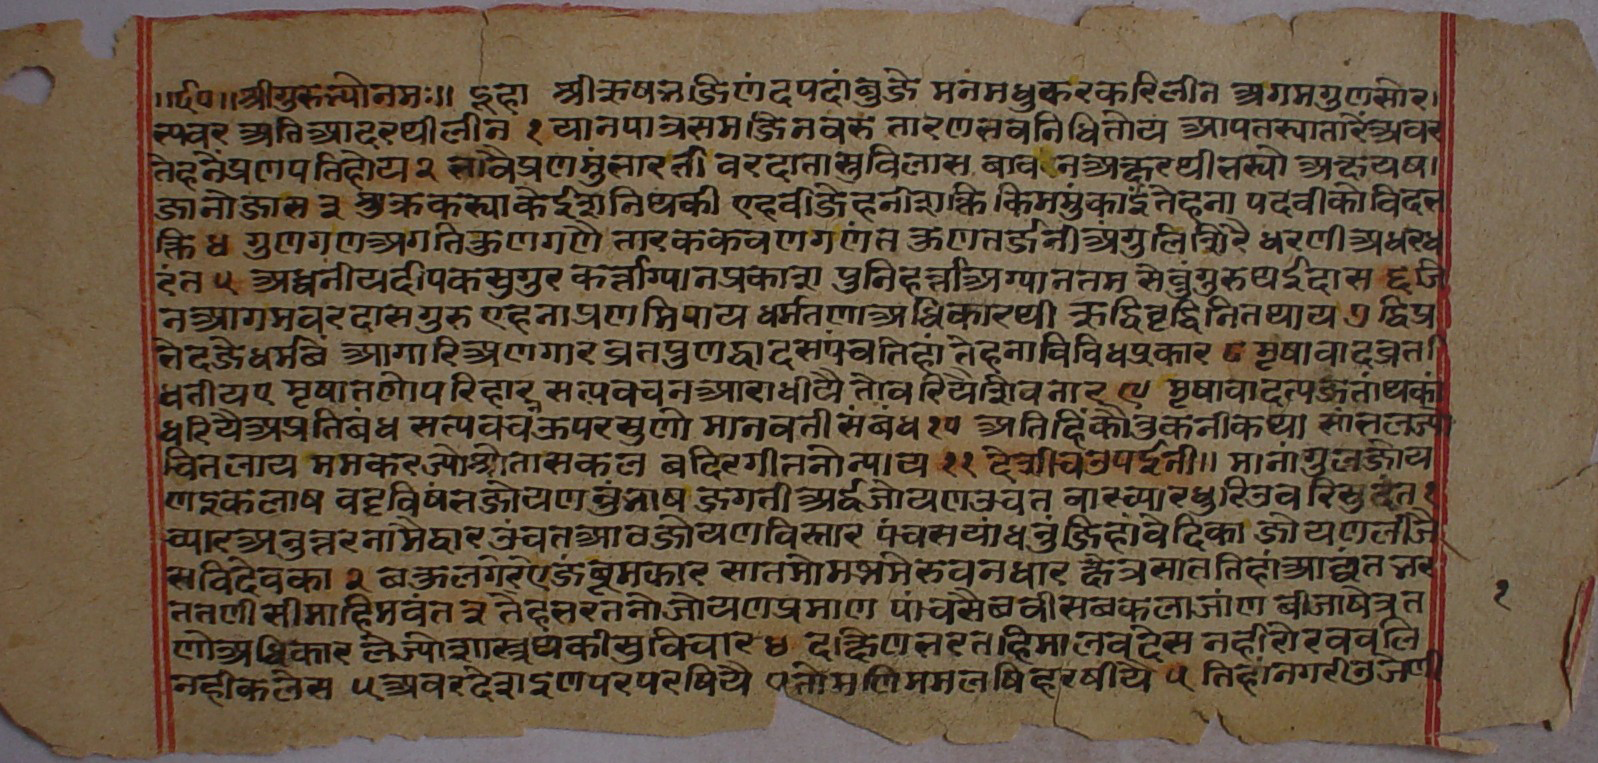 ॥र्द०॥श्रीगुरुभ्योनमः॥ दूहा श्रीऋषभजिणंदपदांबुजे मनमधुकरकरिलीन अगमगुणसौर
भ्यवर अतिआदरथीलीन १ यानपात्रसमजिनवरु तारणभवनिधितोय आपतस्यातारैअवर
तेहनैप्रणपतिहोय २ भावैप्रणमुंभारती वरदातासुविलास बावनअक्षरथीभस्यौ अक्षयष
जानोजास ३ मुक्रकस्याकेईशनिथकी एहवीजेहनीशक्ति किममुंकाईतेहना पदवीकोविदभ
क्ति ४ गुणगणअगति गणै तारककवणगणंत तर्जनीअंगुलि धरणीअधरध
रंत ५ अद्वनीयदीपकसुगुर कर्त्ताग्यानप्रकाश पुनिहर्त्ताअग्यानतम सेवुंगुरुथईदास ६ जि
नआगमवरदासगुरु एहनाप्रणमिपाय धर्मतणाअधिकारथी ऋद्धिवृद्धिनितथाय ७ द्विप्र
भेदजेधर्मबिं आगारिअणगार व्रतपुणद्वादसपंचतिहां तेहनाविविधप्रकार ८ मृषावादव्रत
धतीय९ मृषातणोपरिहार सत्यवचनआराधीयै तोवरियैशिवनार ९ मृषावादत्य थकी
धरियैअप्रतिबंध सत्यवचऊपरसुणो मानवतीसंबंध १० अतिहिंकौतुकनीकथा सांभलज्यो
चितलाय ममकरज्योश्रोतासकल बदिरगीतनोन्याय ११ देशीचउपईनी॥ मानांगुलजोय
णइकलाष वटविषंभजोयण भाष जगती अर्द्धजोयणउचत बारच्यारधुरिउवरिमुदंत १
च्यारअनुत्तरनामैद्वार उंचतआवजोयणविस्तार पंचसयांधनुंजिहांवेदिका जोयणलीजै
सविदेवका २ मकार सातमोमध्यमेरुवनधार क्षेत्रसाततिहांआद्यंत भर
ततणीसीमाहिमवंत ३ तेहभरतनोजोयणप्रमाण पांचसैबवीसबकलाजांण बीजाषेत्रत
णोअधिकार लेज्योशास्त्रथकीसुविचार ४ दक्षिणभरतहिमालवदेस नहीरोरववलि
नहीकलेस ५ अवरदेशइणपरपरषियै एतोमलिममलषिहरषीयै ५ तिहांनगरीउजेणी
१